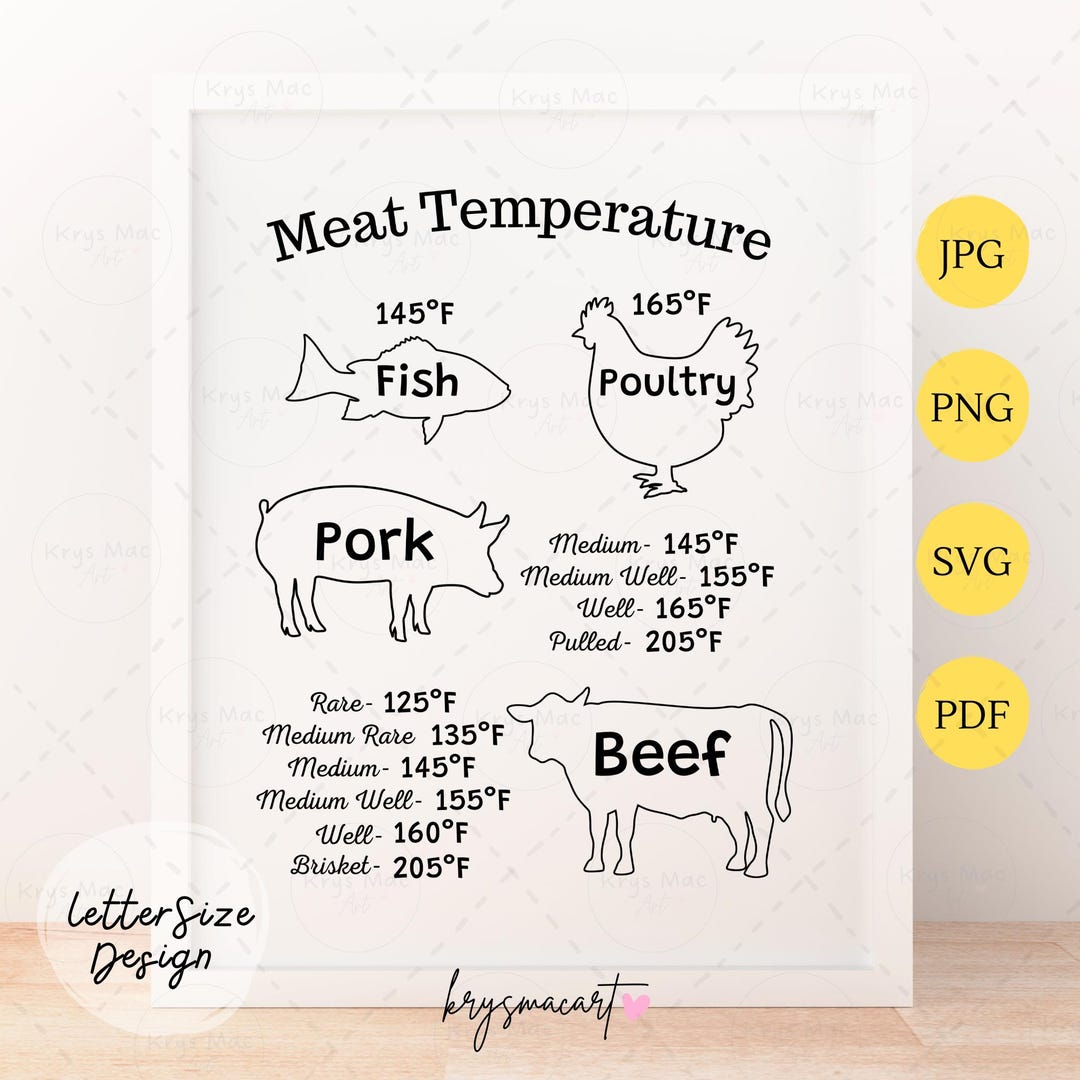 Meat Temperature
145°F
Fish
165°F
Poultry
Pork
Medium- 145°F
Medium Well- 155°F
Well- 165°F
Pulled- 205°F
Rare- 125°F
Medium Rare 135°F
Medium- 145°F
Medium Well- 155°F
Well- 160°F
Brisket- 205°F
Beef
JPG
PNG
SVG
PDF
LetterSize
Design
krysmacart
Krys Mac
Art